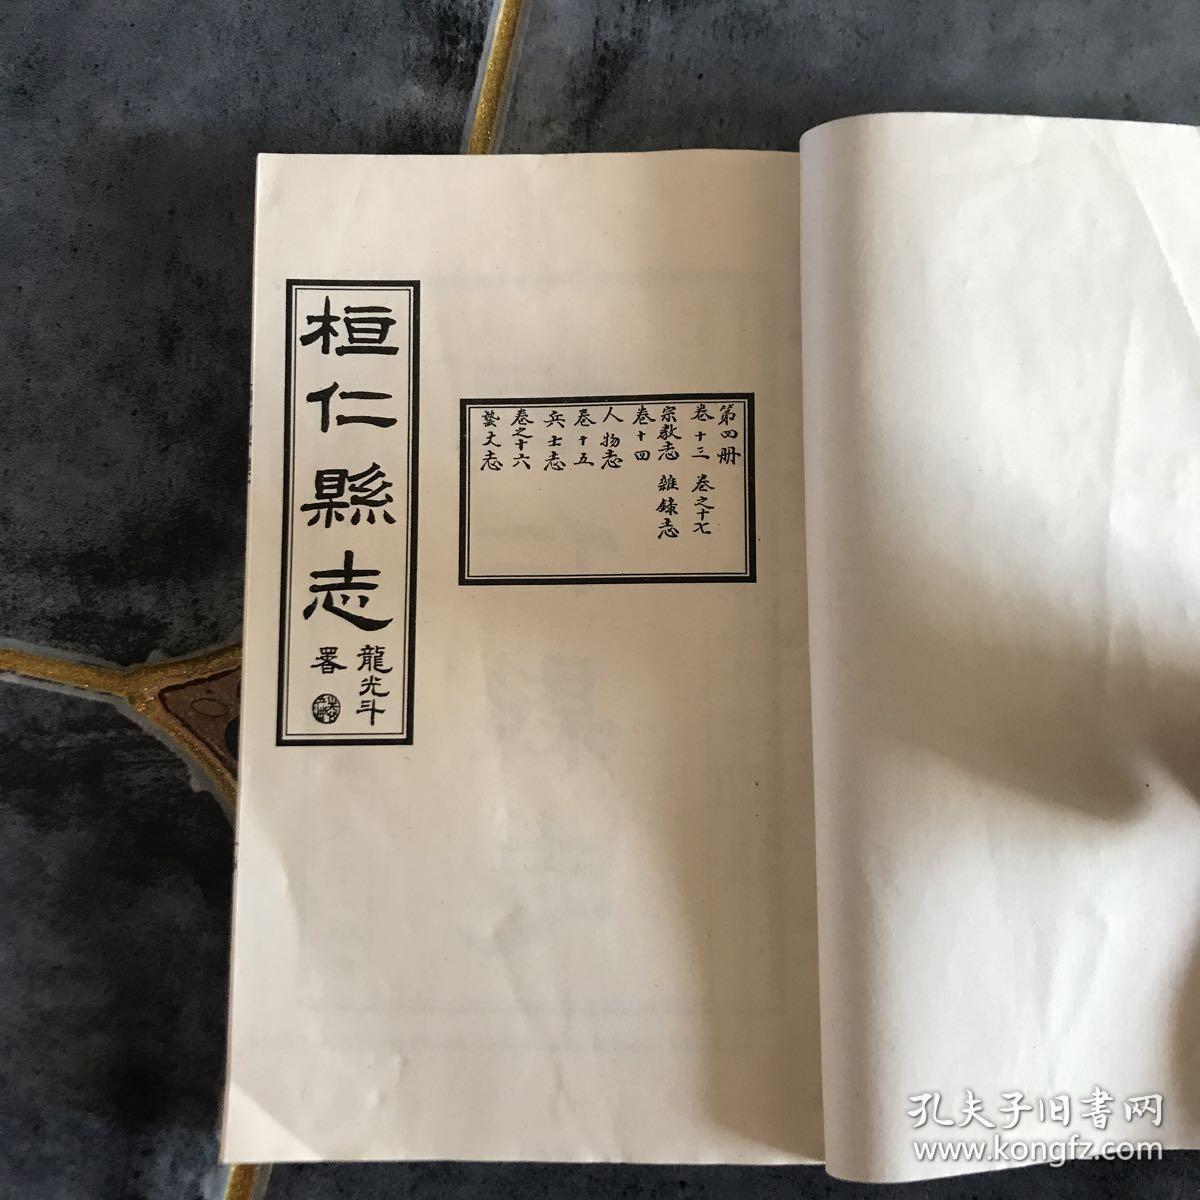 第四册
卷十三 卷之十七
宗教志 雜錄志
卷十四
人物志
卷十五
兵士志
卷之十六
藝文志
桓仁縣志
龍光斗
署
孔夫子旧書网
www.kongfz.com